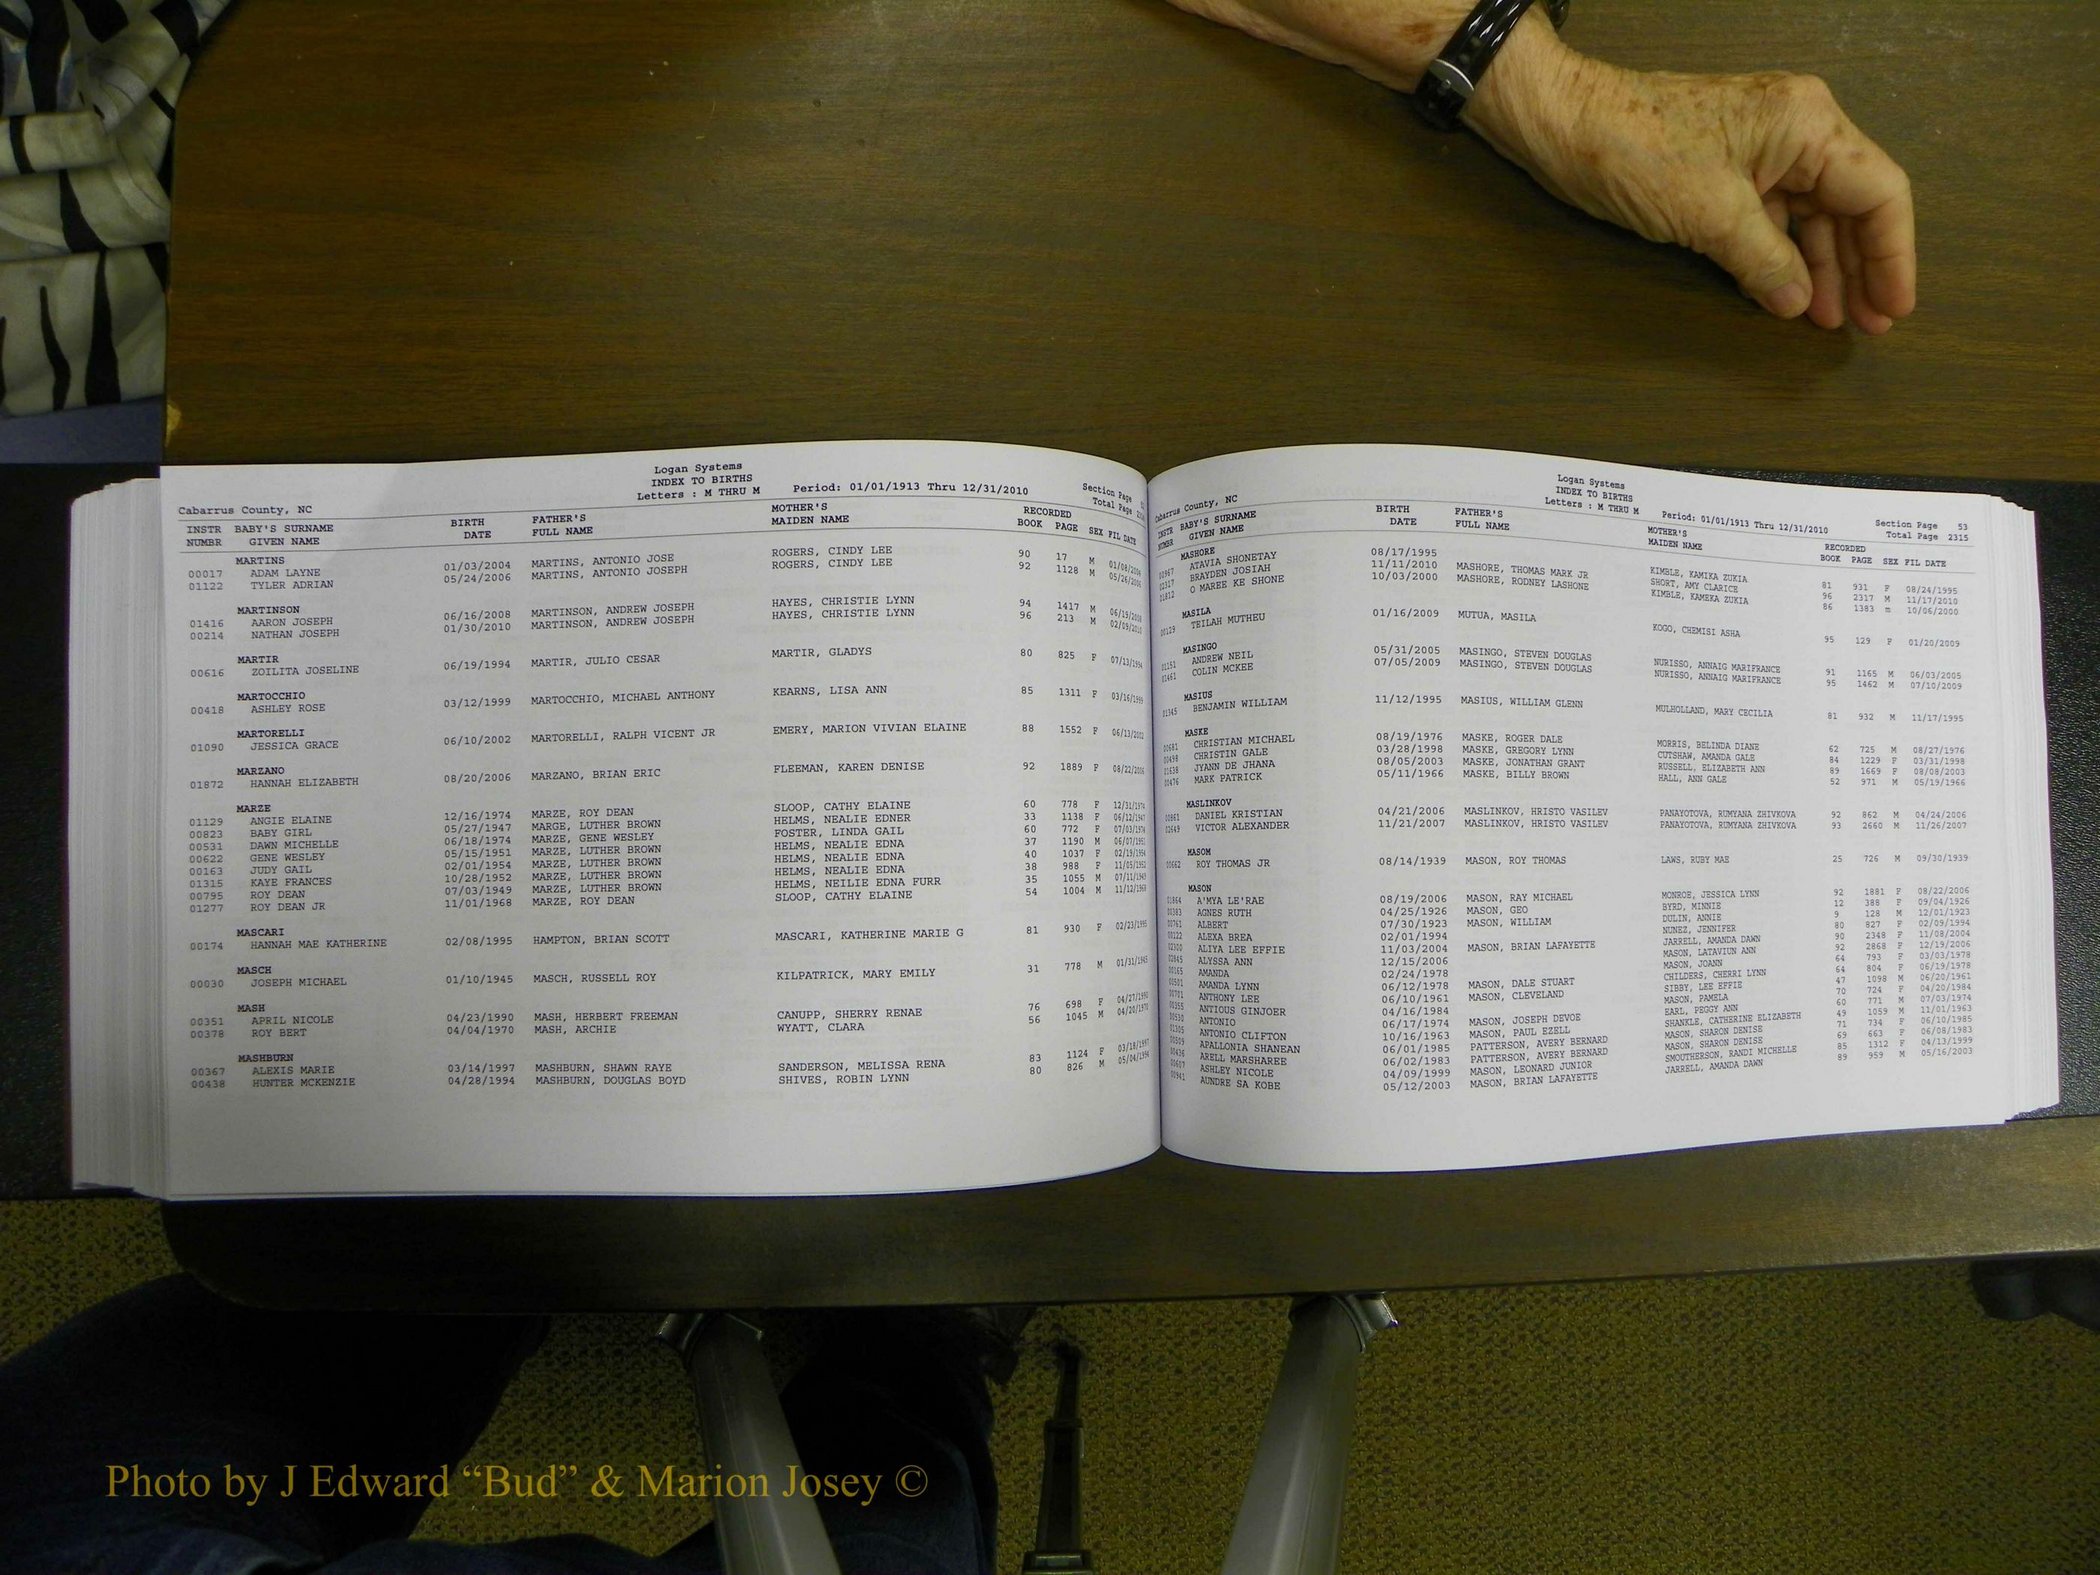 Logan Systems
INDEX TO BIRTHS
Letters : M THRU M Period: 01/01/1913 Thru 12/31/2010
Section Page
Total Page
Cabarrus County, NC
INSTR BABY'S SURNAME BIRTH FATHER'S MOTHER'S RECORDED
NUMBR GIVEN NAME DATE FULL NAME MAIDEN NAME BOOK PAGE SEX FIL DATE
MARTINS
00017 ADAM LAYNE 01/03/2004 MARTINS, ANTONIO JOSE ROGERS, CINDY LEE 90 17 M
01122 TYLER ADRIAN 05/24/2006 MARTINS, ANTONIO JOSEPH ROGERS, CINDY LEE 92 1128 M 05/26/2006
MARTINSON
01416 AARON JOSEPH 06/16/2008 MARTINSON, ANDREW JOSEPH HAYES, CHRISTIE LYNN 94 1417 M 06/19/2008
00214 NATHAN JOSEPH 01/30/2010 MARTINSON, ANDREW JOSEPH HAYES, CHRISTIE LYNN 96 213 M 02/09/2010
MARTIR
00616 ZOILITA JOSELINE 06/19/1994 MARTIR, JULIO CESAR MARTIR, GLADYS 80 825 F 07/13/1994
MARTOCCHIO
00418 ASHLEY ROSE 03/12/1999 MARTOCCHIO, MICHAEL ANTHONY KEARNS, LISA ANN 85 1311 F 03/16/1999
MARTORELLI
01090 JESSICA GRACE 06/10/2002 MARTORELLI, RALPH VICENT JR EMERY, MARION VIVIAN ELAINE 88 1552 F 06/13/2002
MARZANO
01872 HANNAH ELIZABETH 08/20/2006 MARZANO, BRIAN ERIC FLEEMAN, KAREN DENISE 92 1889 F 08/22/2006
MARZE
01129 ANGIE ELAINE 12/16/1974 MARZE, ROY DEAN SLOOP, CATHY ELAINE 60 778 F 12/31/1974
00823 BABY GIRL 05/27/1947 MARGE, LUTHER BROWN HELMS, NEALIE EDNER 33 1138 F 06/12/1947
00531 DAWN MICHELLE 06/18/1974 MARZE, GENE WESLEY FOSTER, LINDA GAIL 60 772 F 07/03/1974
00622 GENE WESLEY 05/15/1951 MARZE, LUTHER BROWN HELMS, NEALIE EDNA 37 1190 M 06/07/1951
00163 JUDY GAIL 02/01/1954 MARZE, LUTHER BROWN HELMS, NEALIE EDNA 40 1037 F 02/19/1954
01315 KAYE FRANCES 10/28/1952 MARZE, LUTHER BROWN HELMS, NEALIE EDNA 38 988 F 11/05/1952
00795 ROY DEAN 07/03/1949 MARZE, LUTHER BROWN HELMS, NEILIE EDNA FURR 35 1055 M 07/11/1949
01277 ROY DEAN JR 11/01/1968 MARZE, ROY DEAN SLOOP, CATHY ELAINE 54 1004 M 11/12/1968
MASCARI
00174 HANNAH MAE KATHERINE 02/08/1995 HAMPTON, BRIAN SCOTT MASCARI, KATHERINE MARIE G 81 930 F 02/23/1995
MASCH
00030 JOSEPH MICHAEL 01/10/1945 MASCH, RUSSELL ROY KILPATRICK, MARY EMILY 31 778 M 01/31/1945
MASH
00351 APRIL NICOLE 04/23/1990 MASH, HERBERT FREEMAN CANUPP, SHERRY RENAE 76 698 F 04/27/1990
00378 ROY BERT 04/04/1970 MASH, ARCHIE WYATT, CLARA 56 1045 M 04/20/1970
MASHBURN
00367 ALEXIS MARIE 03/14/1997 MASHBURN, SHAWN RAYE SANDERSON, MELISSA RENA 83 1124 F 03/18/1997
00438 HUNTER MCKENZIE 04/28/1994 MASHBURN, DOUGLAS BOYD SHIVES, ROBIN LYNN 80 826 M 05/04/1994
Logan Systems
INDEX TO BIRTHS
Letters : M THRU M Period: 01/01/1913 Thru 12/31/2010
Section Page 53
Total Page 2315
Cabarrus County, NC
INSTR BABY'S SURNAME BIRTH FATHER'S MOTHER'S RECORDED
NUMBR GIVEN NAME DATE FULL NAME MAIDEN NAME BOOK PAGE SEX FIL DATE
MASHORE
00967 ATAVIA SHONETAY 08/17/1995 KIMBLE, KAMIKA ZUKIA 81 931 F 08/24/1995
02317 BRAYDEN JOSIAH 11/11/2010 MASHORE, THOMAS MARK JR SHORT, AMY CLARICE 96 2317 M 11/17/2010
01812 O MAREE KE SHONE 10/03/2000 MASHORE, RODNEY LASHONE KIMBLE, KAMEKA ZUKIA 86 1383 m 10/06/2000
MASILA
00129 TEILAH MUTHEU 01/16/2009 MUTUA, MASILA KOGO, CHEMISI ASHA 95 129 F 01/20/2009
MASINGO
01151 ANDREW NEIL 05/31/2005 MASINGO, STEVEN DOUGLAS NURISSO, ANNAIG MARIFRANCE 91 1165 M 06/03/2005
01461 COLIN MCKEE 07/05/2009 MASINGO, STEVEN DOUGLAS NURISSO, ANNAIG MARIFRANCE 95 1462 M 07/10/2009
MASIUS
01345 BENJAMIN WILLIAM 11/12/1995 MASIUS, WILLIAM GLENN MULHOLLAND, MARY CECILIA 81 932 M 11/17/1995
MASKE
00681 CHRISTIAN MICHAEL 08/19/1976 MASKE, ROGER DALE MORRIS, BELINDA DIANE 62 725 M 08/27/1976
00498 CHRISTIN GALE 03/28/1998 MASKE, GREGORY LYNN CUTSHAW, AMANDA GALE 84 1229 F 03/31/1998
01638 JYANN DE JHANA 08/05/2003 MASKE, JONATHAN GRANT RUSSELL, ELIZABETH ANN 89 1669 F 08/08/2003
00476 MARK PATRICK 05/11/1966 MASKE, BILLY BROWN HALL, ANN GALE 52 971 M 05/19/1966
MASLINKOV
00861 DANIEL KRISTIAN 04/21/2006 MASLINKOV, HRISTO VASILEV PANAYOTOVA, RUMYANA ZHIVKOVA 92 862 M 04/24/2006
02649 VICTOR ALEXANDER 11/21/2007 MASLINKOV, HRISTO VASILEV PANAYOTOVA, RUMYANA ZHIVKOVA 93 2660 M 11/26/2007
MASOM
00662 ROY THOMAS JR 08/14/1939 MASON, ROY THOMAS LAWS, RUBY MAE 25 726 M 09/30/1939
MASON
01864 A'MYA LE'RAE 08/19/2006 MASON, RAY MICHAEL MONROE, JESSICA LYNN 92 1881 F 08/22/2006
00383 AGNES RUTH 04/25/1926 MASON, GEO BYRD, MINNIE 12 388 F 09/04/1926
00761 ALBERT 07/30/1923 MASON, WILLIAM DULIN, ANNIE 9 128 M 12/01/1923
00122 ALEXA BREA 02/01/1994 NUNEZ, JENNIFER 80 827 F 02/09/1994
02300 ALIYA LEE EFFIE 11/03/2004 MASON, BRIAN LAFAYETTE JARRELL, AMANDA DAWN 90 2348 F 11/08/2004
02845 ALYSSA ANN 12/15/2006 MASON, LATAVIUN ANN 92 2868 F 12/19/2006
00165 AMANDA 02/24/1978 MASON, JOANN 64 793 F 03/03/1978
00501 AMANDA LYNN 06/12/1978 MASON, DALE STUART CHILDERS, CHERRI LYNN 64 804 F 06/19/1978
00701 ANTHONY LEE 06/10/1961 MASON, CLEVELAND SIBBY, LEE EFFIE 47 1098 M 06/20/1961
00355 ANTIOUS GINJOER 04/16/1984 MASON, PAMELA 70 724 F 04/20/1984
00530 ANTONIO 06/17/1974 MASON, JOSEPH DEVOE EARL, PEGGY ANN 60 771 M 07/03/1974
01305 ANTONIO CLIFTON 10/16/1963 MASON, PAUL EZELL SHANKLE, CATHERINE ELIZABETH 49 1059 M 11/01/1963
00509 APALLONIA SHANEAN 06/01/1985 PATTERSON, AVERY BERNARD MASON, SHARON DENISE 71 734 F 06/10/1985
00436 ARELL MARSHAREE 06/02/1983 PATTERSON, AVERY BERNARD MASON, SHARON DENISE 69 663 F 06/08/1983
00607 ASHLEY NICOLE 04/09/1999 MASON, LEONARD JUNIOR SMOUTHERSON, RANDI MICHELLE 85 1312 F 04/13/1999
00941 AUNDRE SA KOBE 05/12/2003 MASON, BRIAN LAFAYETTE JARRELL, AMANDA DAWN 89 959 M 05/16/2003
Photo by J Edward “Bud” & Marion Josey ©